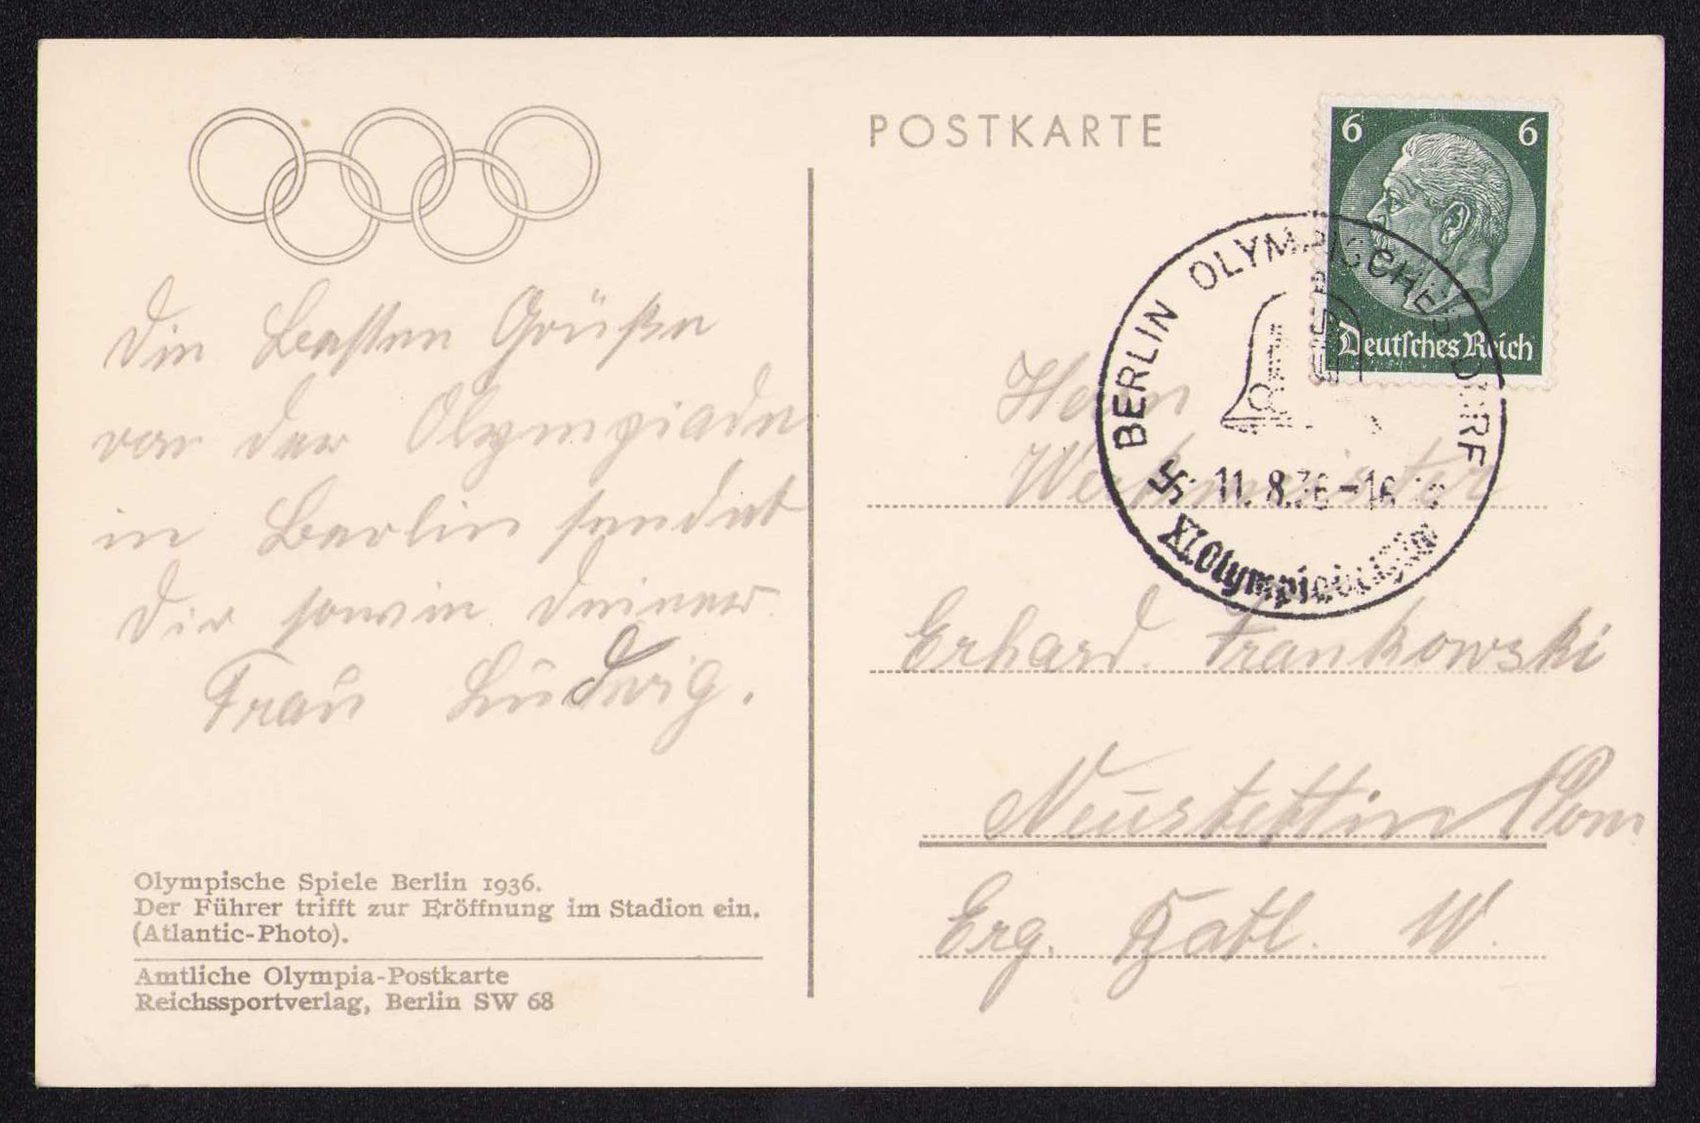 POSTKARTE
6 6
Deutsches Reich
BERLIN OLYMPISCHES DORF
11.8.36-16
XI. Olympiade
Die besten Grüße
von der Olympiade
in Berlin sendet
Dir sowie Deiner
Frau Ludwig.
Herrn
Werkmeister
Erhard Frankowski
Neustettin Pom
Erg. Batl. W.
Olympische Spiele Berlin 1936.
Der Führer trifft zur Eröffnung im Stadion ein.
(Atlantic-Photo).
Amtliche Olympia-Postkarte
Reichssportverlag, Berlin SW 68